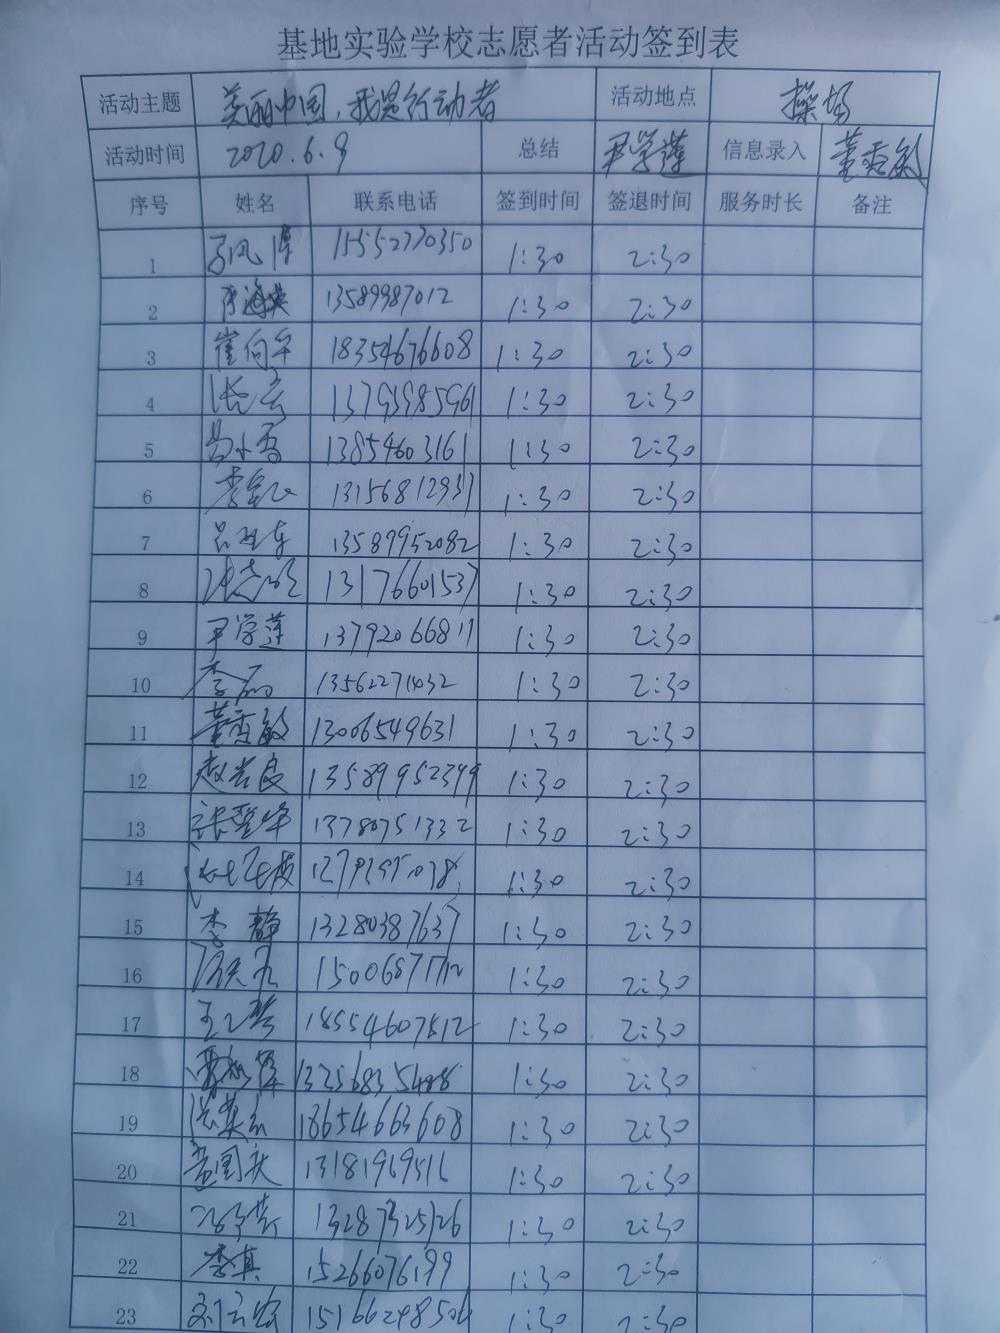 基地实验学校志愿者活动签到表
活动主题 美丽中国，我是行动者 活动地点 操场
活动时间 2020.6.9 总结 尹学莲 信息录入 董秀敏
序号 姓名 联系电话 签到时间 签退时间 服务时长 备注
1 15552770350 1:30 2:30
2 13589987012 1:30 2:30
3 崔向平 18354676608 1:30 2:30
4 张宏 13793985961 1:30 2:30
5 13854603161 1:30 2:30
6 13156812937 1:30 2:30
7 13589952082 1:30 2:30
8 张志明 13176601537 1:30 2:30
9 尹学莲 13792066811 1:30 2:30
10 李 1:30 2:30
11 董秀敏 13006549631 1:30 2:30
12 赵吉良 13589952399 1:30 2:30
13 张 13780751332 1:30 2:30
14 1:30 2:30
15 李静 13280387637 1:30 2:30
16 1:30 2:30
17 1:30 2:30
18 1:30 2:30
19 18654663608 1:30 2:30
20 1:30 2:30
21 13287325126 1:30 2:30
22 李真 15266076199 1:30 2:30
23 1:30 2:30